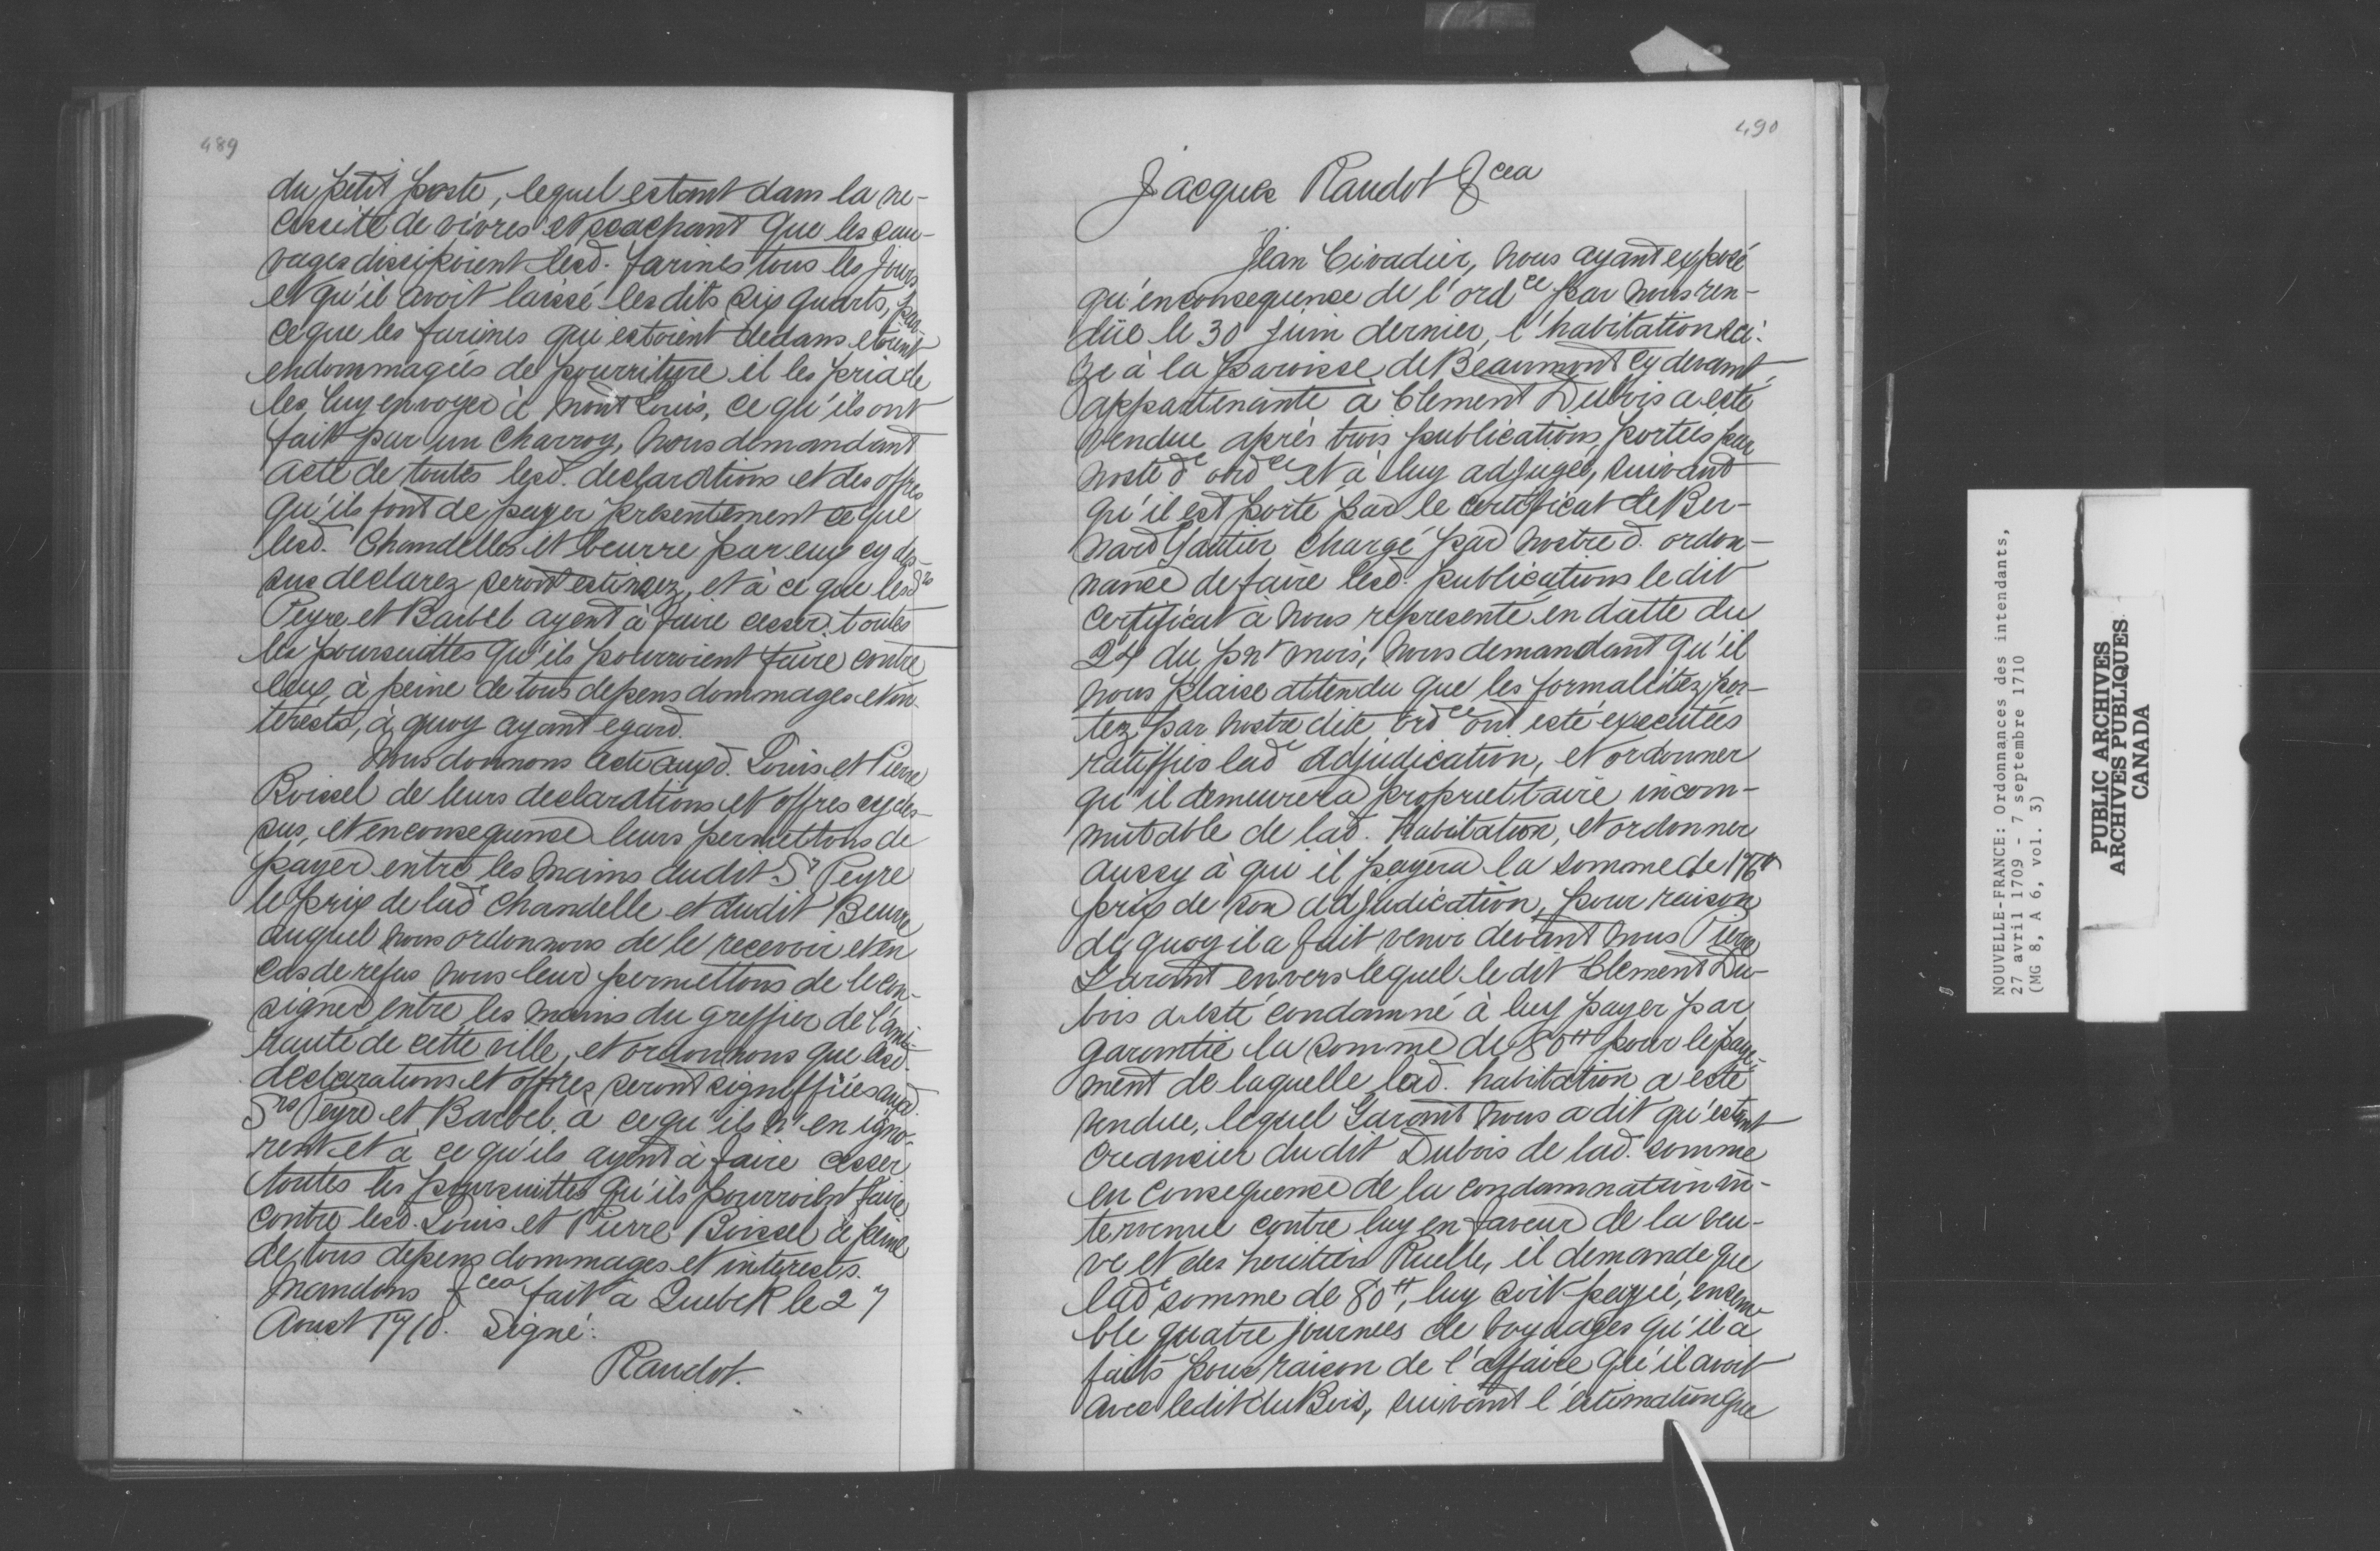 489
du petit poste, lequel estant dans la ne-
cessité de vivres et scachant que les sau-
vages dissipoient lesd. farines tous les jours
et qu'il avoit laissé lesdits six quarts, par-
ceque les farines qui estoient dedans etoient
endommagées de pourriture il les pria de
les luy envoyer à Mont Louis, ce qu'ils ont
fait par un charroy, nous demandant
acte de toutes lesd. declarations et des offres
qu'ils font de payer presentement ce que
lesd. Chandelles et beurre par eux cy des-
sus declarez seront estimez, et à ce que lesd. Srs
Peyre et Barbel ayent à faire cesser toutes
les poursuittes qu'ils pourroient faire contre
eux, à peine de tous depens dommages et in-
terests, à quoy ayant egard.
Nous donnons acte auxd. Louis et Pierre
Boissel de leurs declarations et offres cy des-
sus, et en consequence leurs permettons de
payer entre les mains dudit Sr Peyre
le prix de lade chandelle et dudit Beurre
auquel nous ordonnons de le recevoir et en
cas de refus nous leur permettons de le con-
signer entre les mains du greffier de l'ami-
rauté de cette ville, et ordonnons que lesd.
declarations et offres seront signiffiées auxd.
Srs Peyre et Barbel, à ce qu'ils n'en igno-
rent et à ce qu'ils ayent à faire cesser
toutes les poursuittes qu'ils pourroient faire
contre lesd. Louis et Pierre Boissel à peine
de tous depens dommages et interests.
Mandons &cea fait à Quebek le 27
Aoust 1710. Signé:
Raudot.
490
Jacques Raudot &cea
Jean Civadier, nous ayant exposé
qu'en consequence de l'ordce par nous ren-
düe le 30 Juin dernier, l'habitation sci-
ze à la paroisse de Beaumont cy devant
appartenante à Clement Dubois a esté
vendue après trois publications, portées par
noste de ordce et à luy adjugée, suivant
qu'il est porté par le certificat de Ber-
nard Gautier chargé par nostre d. ordon-
nance de faire lesd. publications le dit
certificat à nous representé en datte du
24 du pnt mois, nous demandant qu'il
nous plaise attendu que les formalitez por-
tez par nostre dite ordce ont esté executées
ratiffier lade adjudication, et ordonner
qu'il demeurera propriettaire incom-
mutable de lad. habitation, et ordonner
aussy à qui il payera la somme de 176tt
prix de son adjudication, pour raison
de quoy il a fait venir devant nous Pierre
Garant envers lequel le dit Clement Du-
bois a esté condamné à luy payer par
garantie la somme de 80tt pour le paye-
ment de laquelle lad. habitation a esté
vendue, lequel Garant nous a dit qu'estant
creancier du dit Dubois de lad. somme
en consequence de la condamnation in-
tervenue contre luy en faveur de la veu-
ve et des heritiers Ruelle, il demande que
lade somme de 80tt, luy soit payée, ensem-
ble quatre journées de voyages qu'il a
faits pour raison de l'affaire qu'il avoit
avec ledit du Bois, suivant l'estimation que
NOUVELLE-FRANCE: Ordonnances des intendants,
27 avril 1709 - 7 septembre 1710
(MG 8, A 6, vol. 3)
PUBLIC ARCHIVES
ARCHIVES PUBLIQUES
CANADA